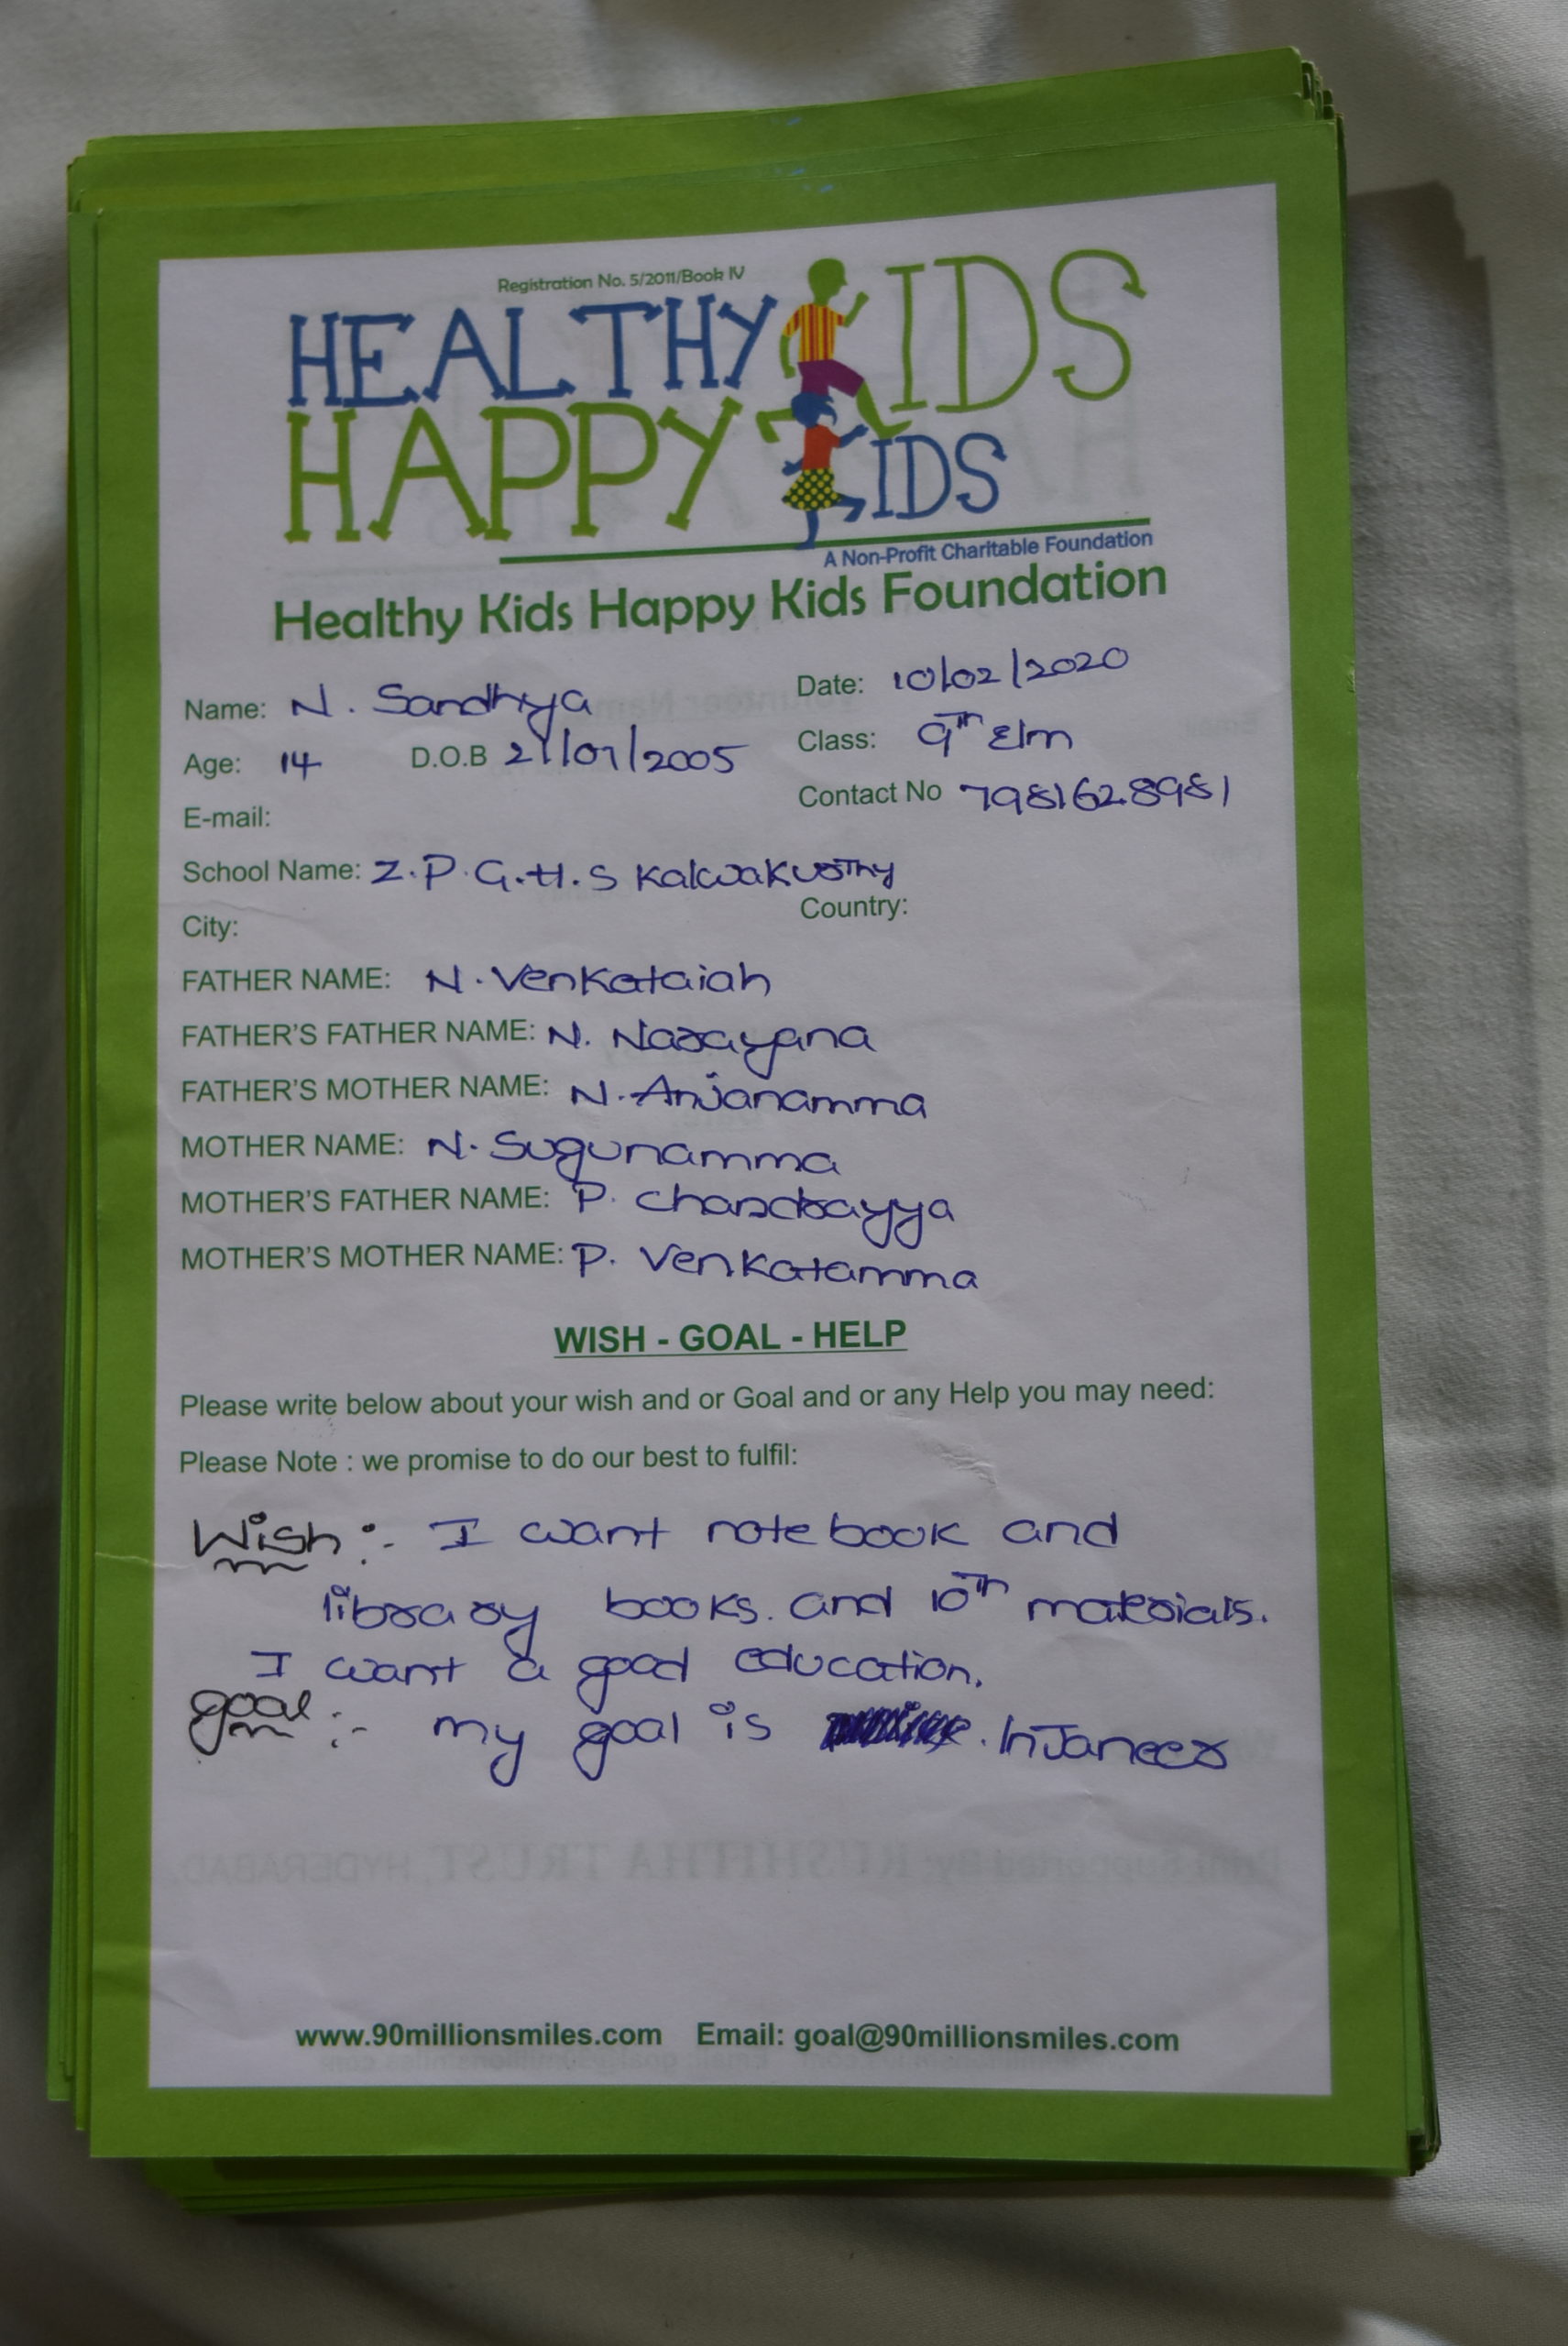 Registration No. 5/2011/Book IV
HEALTHY KIDS
HAPPY KIDS
A Non-Profit Charitable Foundation
Healthy Kids Happy Kids Foundation
Name: N. Sandhya Date: 10/02/2020
Age: 14 D.O.B 21/07/2005 Class: 9th E/m
E-mail: Contact No 7981628981
School Name: Z.P.G.H.S Kalwakurthy
City: Country:
FATHER NAME: N. Venkataiah
FATHER'S FATHER NAME: N. Narayana
FATHER'S MOTHER NAME: N. Anjanamma
MOTHER NAME: N. Sugunamma
MOTHER'S FATHER NAME: P. Chandrayya
MOTHER'S MOTHER NAME: P. Venkatamma
WISH - GOAL - HELP
Please write below about your wish and or Goal and or any Help you may need:
Please Note : we promise to do our best to fulfil:
Wish :- I want note book and
library books. and 10th materials.
I want a good education.
goal :- my goal is . InJaneer
www.90millionsmiles.com Email: goal@90millionsmiles.com